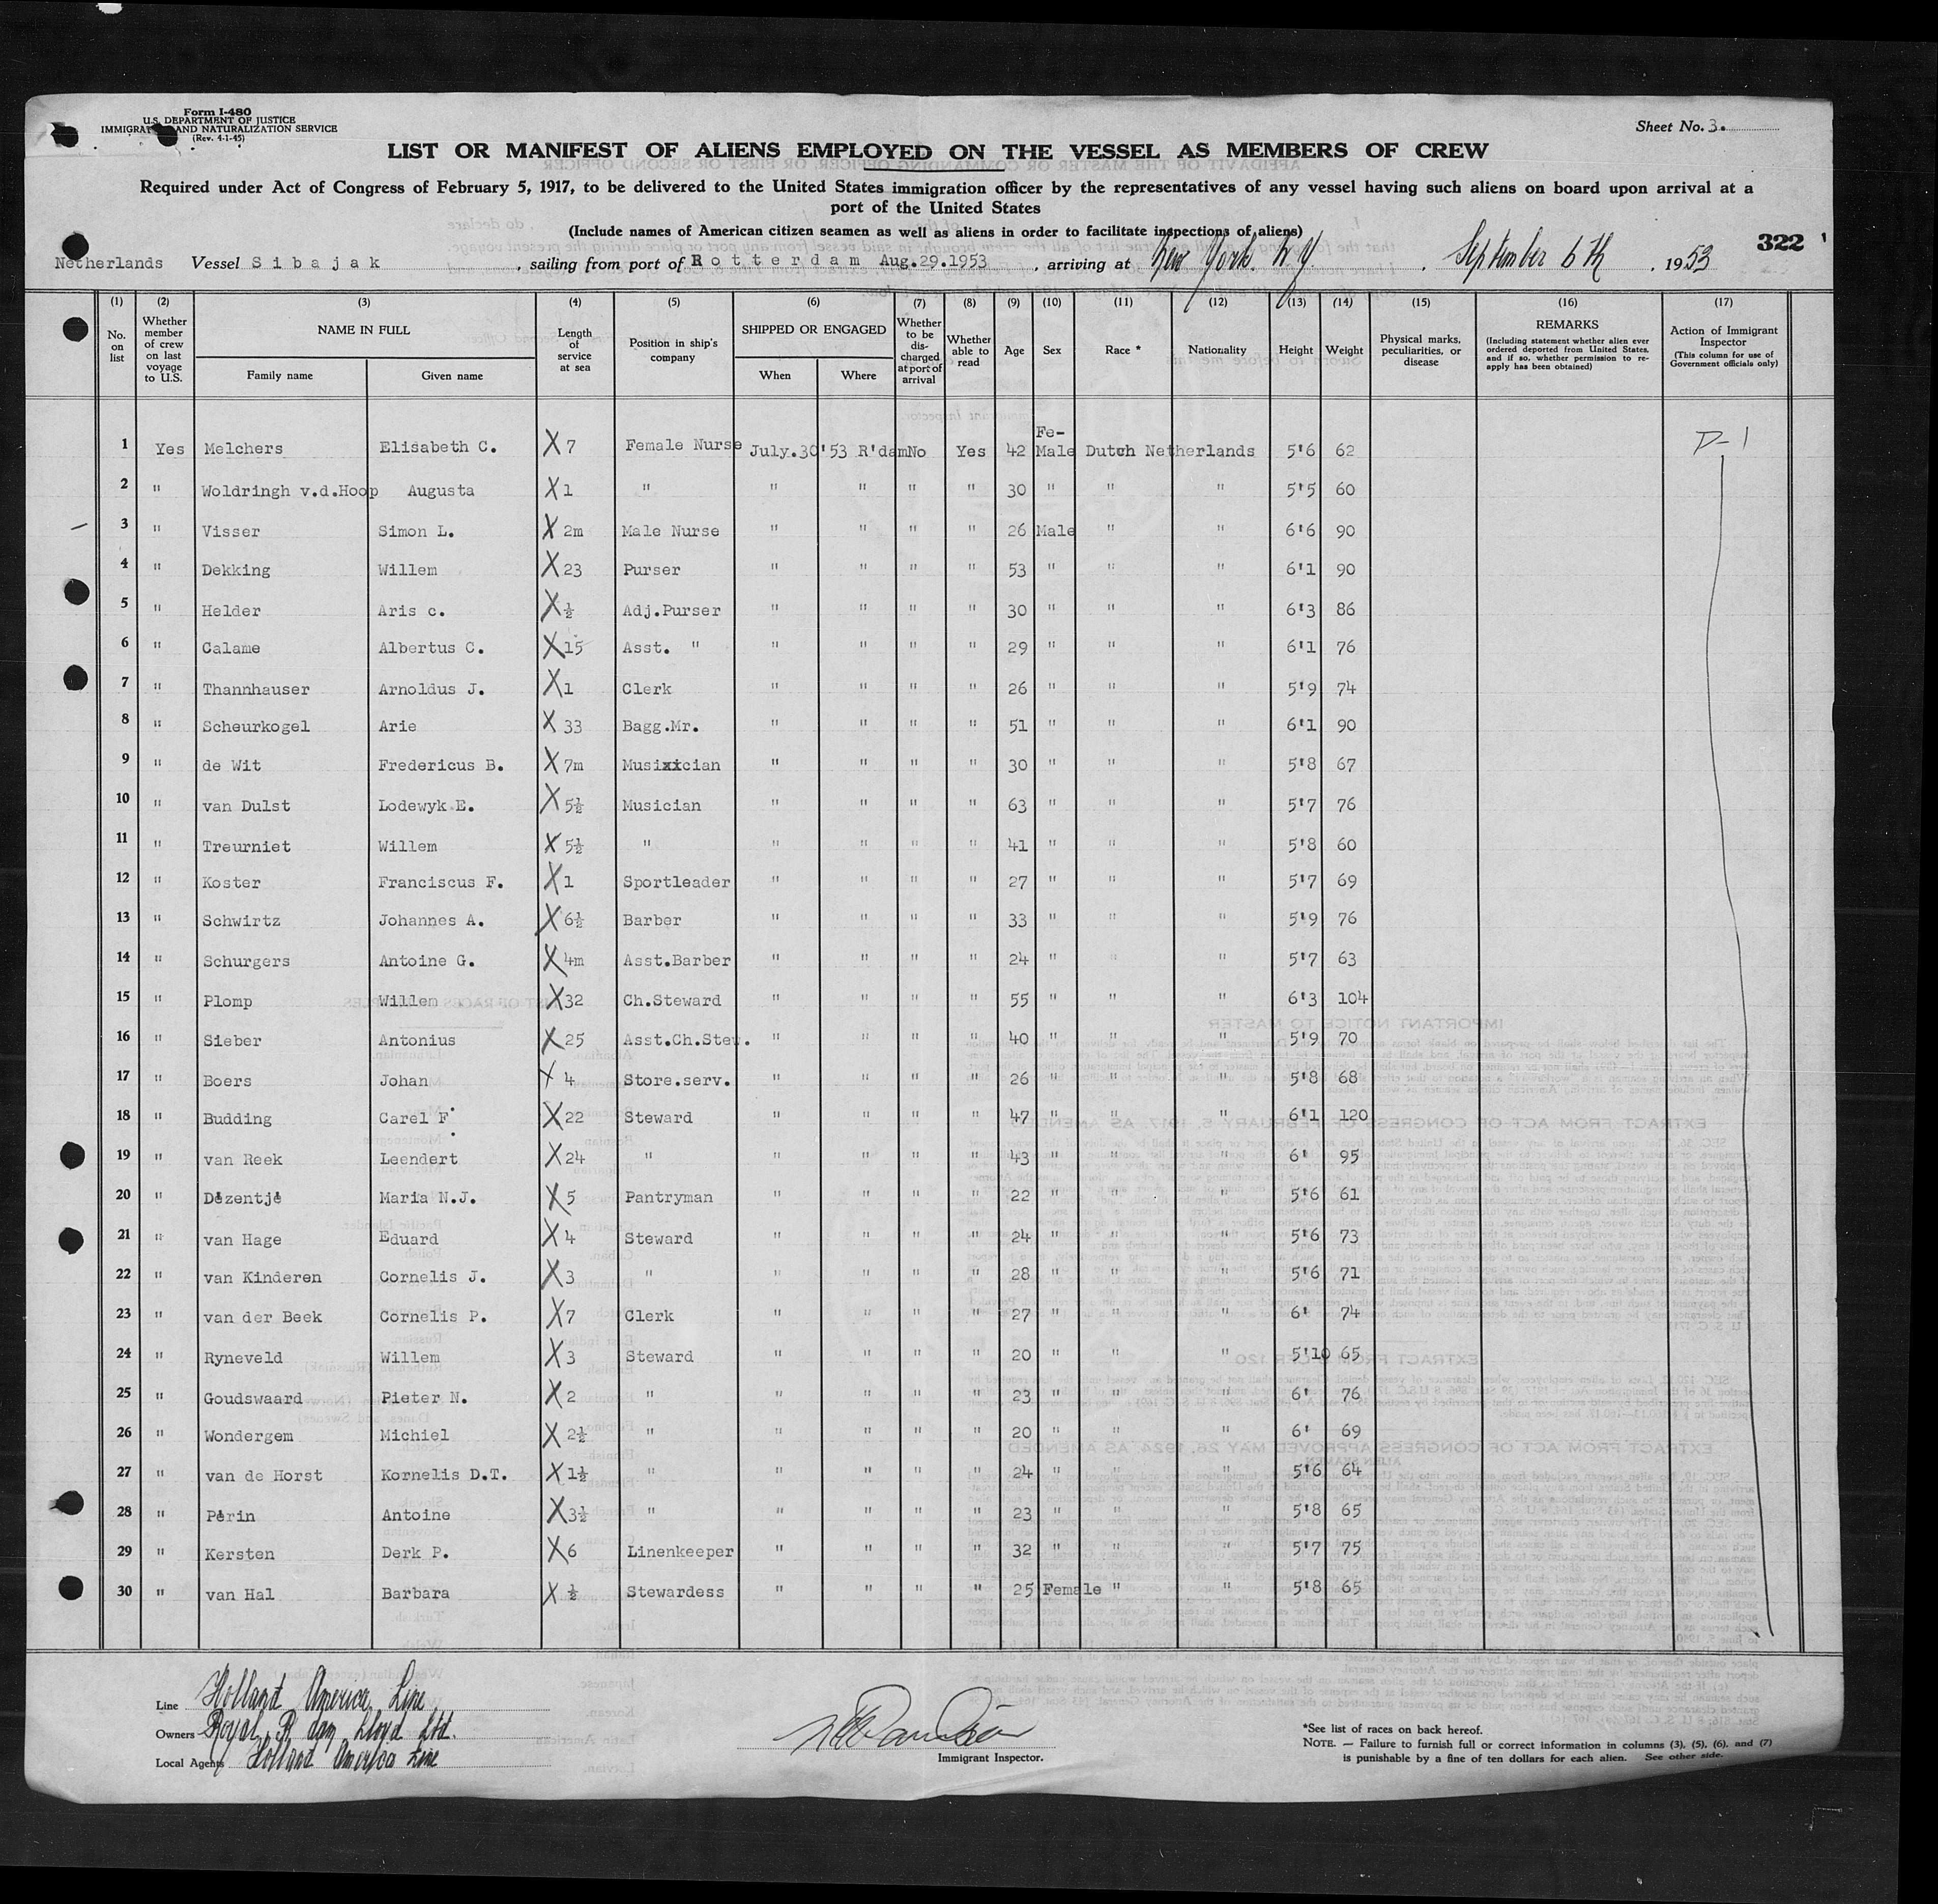 Form I-480
U.S. DEPARTMENT OF JUSTICE
IMMIGRAT AND NATURALIZATION SERVICE
(Rev. 4-1-45)
Sheet No. 3.
LIST OR MANIFEST OF ALIENS EMPLOYED ON THE VESSEL AS MEMBERS OF CREW
Required under Act of Congress of February 5, 1917, to be delivered to the United States immigration officer by the representatives of any vessel having such aliens on board upon arrival at a
port of the United States
(Include names of American citizen seamen as well as aliens in order to facilitate inspections of aliens)
322
Netherlands Vessel Sibajak, sailing from port of Rotterdam Aug.29.1953, arriving at New York. N.Y., September 6th, 1953
(1) (2) (3) (4) (5) (6) (7) (8) (9) (10) (11) (12) (13) (14) (15) (16) (17)
No. on list | Whether member of crew on last voyage to U.S. | NAME IN FULL | Length of service at sea | Position in ship's company | SHIPPED OR ENGAGED | Whether to be discharged at port of arrival | Whether able to read | Age | Sex | Race * | Nationality | Height | Weight | Physical marks, peculiarities, or disease | REMARKS (Including statement whether alien ever ordered deported from United States, and if so, whether permission to re-apply has been obtained) | Action of Immigrant Inspector (This column for use of Government officials only)
Family name | Given name | When | Where
1 Yes Melchers Elisabeth C. X 7 Female Nurse July.30'53 R'dam No Yes 42 Fe-Male Dutch Netherlands 5'6 62 D-1
2 " Woldringh v.d.Hoop Augusta X 1 " " " " " 30 " " " 5'5 60
3 " Visser Simon L. X 2m Male Nurse " " " " 26 Male " " 6'6 90
4 " Dekking Willem X 23 Purser " " " " 53 " " " 6'1 90
5 " Helder Aris c. X ½ Adj.Purser " " " " 30 " " " 6'3 86
6 " Calame Albertus C. X 15 Asst. " " " " " 29 " " " 6'1 76
7 " Thannhauser Arnoldus J. X 1 Clerk " " " " 26 " " " 5'9 74
8 " Scheurkogel Arie X 33 Bagg.Mr. " " " " 51 " " " 6'1 90
9 " de Wit Fredericus B. X 7m Musixxcian " " " " 30 " " " 5'8 67
10 " van Dulst Lodewyk E. X 5½ Musician " " " " 63 " " " 5'7 76
11 " Treurniet Willem X 5½ " " " " " 41 " " " 5'8 60
12 " Koster Franciscus F. X 1 Sportleader " " " " 27 " " " 5'7 69
13 " Schwirtz Johannes A. X 6½ Barber " " " " 33 " " " 5'9 76
14 " Schurgers Antoine G. X 4m Asst.Barber " " " " 24 " " " 5'7 63
15 " Plomp Willem X 32 Ch.Steward " " " " 55 " " " 6'3 104
16 " Sieber Antonius X 25 Asst.Ch.Stew. " " " " 40 " " " 5'9 70
17 " Boers Johan X 4 Store.serv. " " " " 26 " " " 5'8 68
18 " Budding Carel F. X 22 Steward " " " " 47 " " " 6'1 120
19 " van Reek Leendert X 24 " " " " " 43 " " " 6' 95
20 " Dézentjé Maria N.J. X 5 Pantryman " " " " 22 " " " 5'6 61
21 " van Hage Eduard X 4 Steward " " " " 24 " " " 5'6 73
22 " van Kinderen Cornelis J. X 3 " " " " " 28 " " " 5'6 71
23 " van der Beek Cornelis P. X 7 Clerk " " " " 27 " " " 6' 74
24 " Ryneveld Willem X 3 Steward " " " " 20 " " " 5'10 65
25 " Goudswaard Pieter N. X 2 " " " " " 23 " " " 6' 76
26 " Wondergem Michiel X 2½ " " " " " 20 " " " 6' 69
27 " van de Horst Kornelis D.T. X 1½ " " " " " 24 " " " 5'6 64
28 " Périn Antoine X 3½ " " " " " 23 " " " 5'8 65
29 " Kersten Derk P. X 6 Linenkeeper " " " " 32 " " " 5'7 75
30 " van Hal Barbara X ½ Stewardess " " " " 25 Female " " 5'8 65
Line Holland America Line
Owners Royal R'dam Lloyd Ltd.
Local Agents Holland America Line
Immigrant Inspector.
*See list of races on back hereof.
NOTE. — Failure to furnish full or correct information in columns (3), (5), (6), and (7)
is punishable by a fine of ten dollars for each alien. See other side.